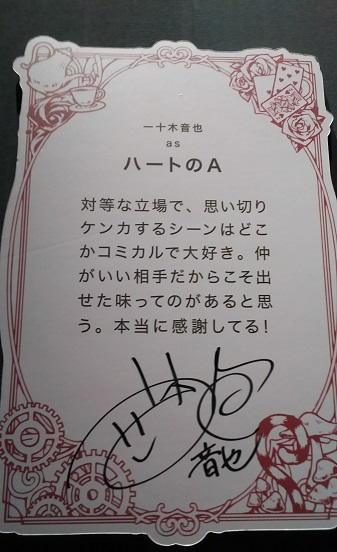 一十木音也
as
ハートのA
対等な立場で、思い切り
ケンカするシーンはどこ
かコミカルで大好き。仲
がいい相手だからこそ出
せた味ってのがあると思
う。本当に感謝してる！
音也